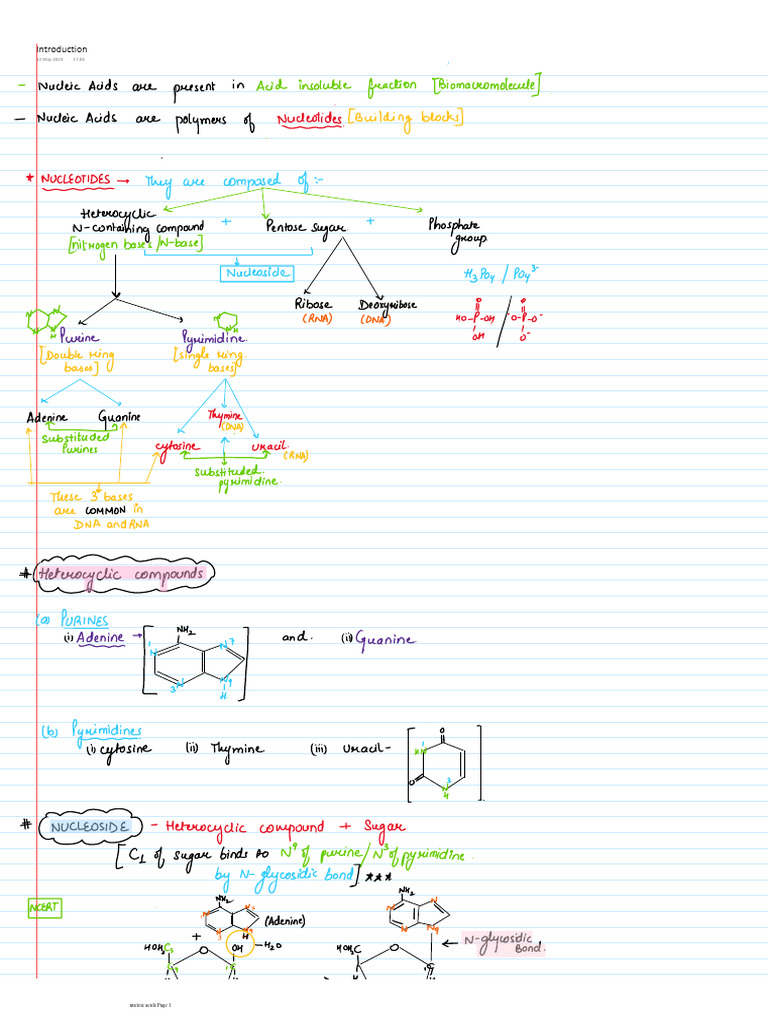 Introduction
12 May 2020 17:02
- Nucleic Acids are present in Acid insoluble fraction [Biomacromolecule]
- Nucleic Acids are polymers of Nucleotides. [Building blocks]
* NUCLEOTIDES → They are composed of :-
Heterocyclic N-containing compound [nitrogen bases/N-base] + Pentose sugar + Phosphate group
Nucleoside
H3PO4 / PO4 3-
Ribose (RNA) Deoxyribose (DNA)
O HO-P-OH OH / O -O-P-O- O-
N N N N H
Purine [Double ring bases]
N N
Pyrimidine. [Single ring bases]
Adenine Guanine
Substituted Purines
Thymine (DNA)
cytosine uracil (RNA)
Substituted pyrimidine.
These 3 bases
are COMMON in
DNA and RNA
# Heterocyclic compounds
(a) PURINES
(i) Adenine → and. (ii) Guanine
NH2
1 N N 7
3 N N 9
H
(b) Pyrimidines
(i) cytosine (ii) Thymine (iii) uracil-
O
HN 1
O N 3
H
# NUCLEOSIDE - Heterocyclic compound + Sugar
[C1 of sugar binds to N9 of purine/N3 of pyrimidine.
by N-glycosidic bond] ***
NCERT
NH2 NH2
N N N N
N 3 N 9 H (Adenine) N N9
+ OH -H2O
HOH2C5 O HOH2C O
4 1 C
← N-glycosidic Bond.
nucleic acids Page 1